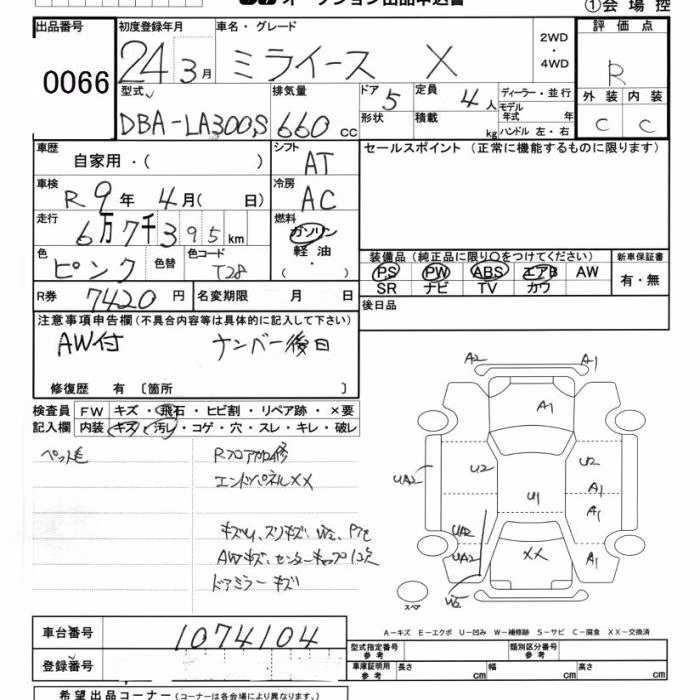 オークション出品申込書
①会場控
出品番号 0066
初度登録年月 24年3月
車名・グレード ミライース X
2WD ・ 4WD
評価点 R
外装 内装
C C
型式 DBA-LA300S
排気量 660cc
ドア 5
定員 4人
形状
積載 kg
ディーラー・並行
モデル年式 年
ハンドル 左・右
車歴 自家用・( )
シフト AT
セールスポイント(正常に機能するものに限ります)
車検 R9年4月( 日)
冷房 AC
走行 6万7千395km
燃料 ガソリン
軽油・( )
色 ピンク
色替
色コード T28
装備品(純正品に限り○をつけてください)
新車保証書
PS PW ABS エアB AW
SR ナビ TV カワ
有・無
R券 7420円
名変期限 月 日
後日品
注意事項申告欄(不具合内容等は具体的に記入して下さい)
AW付 ナンバー後日
修復歴 有〔箇所 〕
検査員記入欄
FW キズ・飛石・ヒビ割・リペア跡・×要
内装 キズ・汚レ・コゲ・穴・スレ・キレ・破レ
ペット毛
Rフロア加修
エンドパネルXX
AWキズ、センターキャップ1コ欠
ドアミラーキズ
A2 A1
A1
U2 U2
UA2 A1
U1 A1
UA2
UA2 XX A1
W2
スペア
A-キズ E-エクボ U-凹み W-補修跡 S-サビ C-腐食 XX-交換済
車台番号 1074104
登録番号
型式指定番号 参考
類別区分番号 参考
車庫証明用 参考
長さ cm 幅 cm 高さ cm
希望出品コーナー(コーナーは各会場により異なります。)